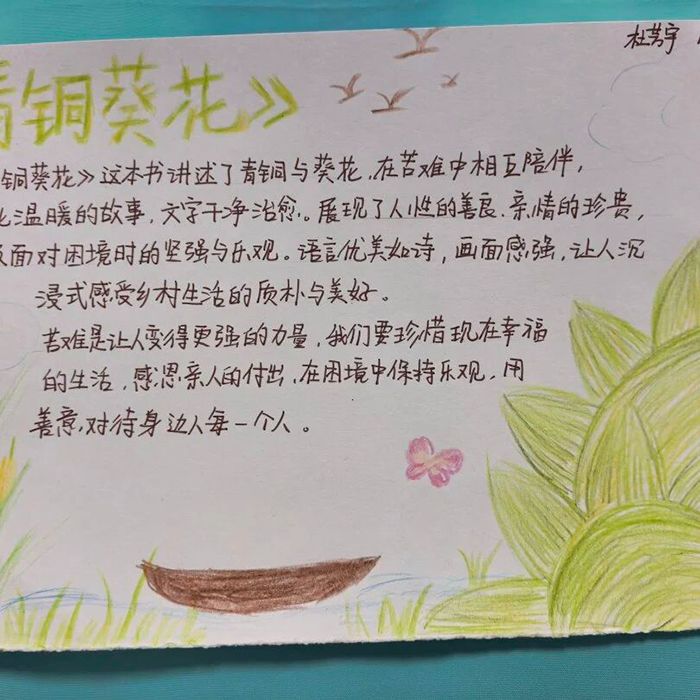 杜芸宇
青铜葵花》
铜葵花》这本书讲述了青铜与葵花,在苦难中相互陪伴,
温暖的故事,文字干净治愈。展现了人性的善良、亲情的珍贵,
面对困境时的坚强与乐观。语言优美如诗,画面感强,让人沉
浸式感受乡村生活的质朴与美好。
苦难是让人变得更强的力量,我们要珍惜现在幸福
的生活,感恩亲人的付出,在困境中保持乐观,用
善意,对待身边人每一个人。